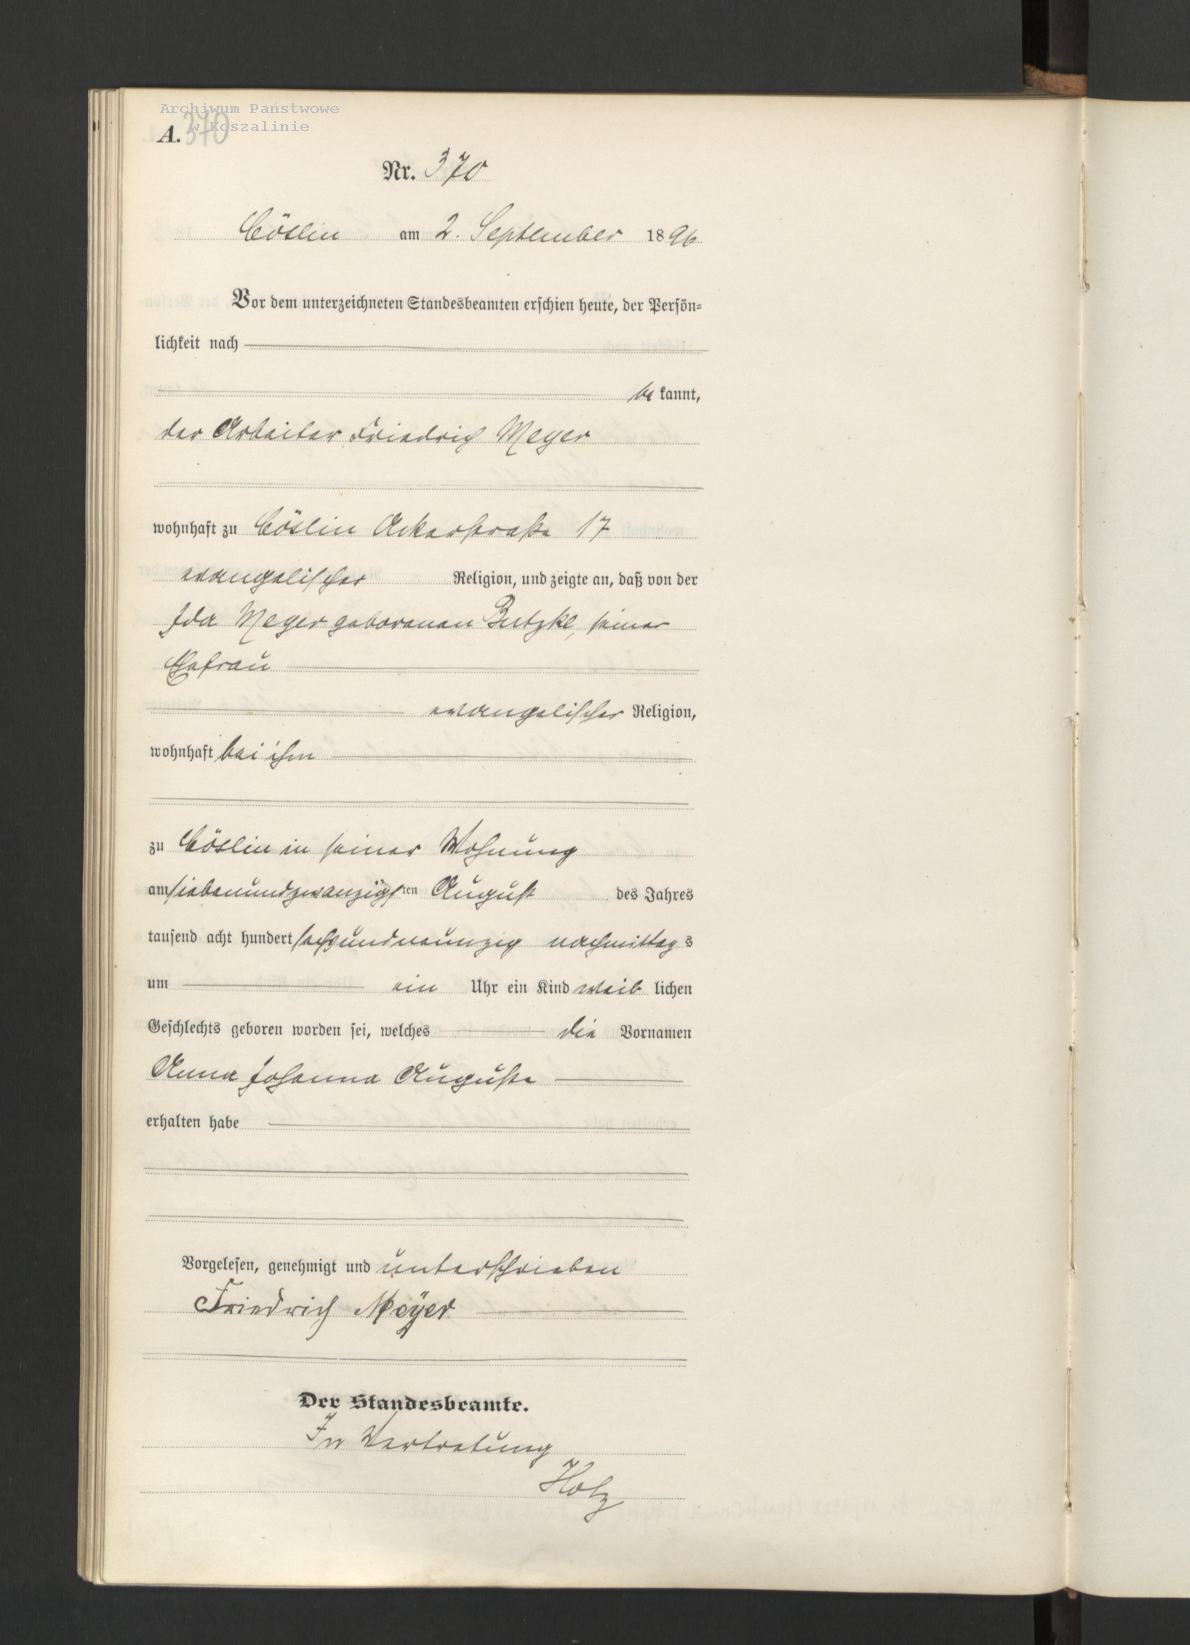 Archiwum Państwowe
w Koszalinie
A. 370
Nr. 370
Cöslin am 2. September 1896
Vor dem unterzeichneten Standesbeamten erschien heute, der Persön=
lichkeit nach
be kannt,
der Arbeiter Friedrich Meyer
wohnhaft zu Cöslin Ackerstraße 17
evangelischer Religion, und zeigte an, daß von der
Ida Meyer geborenen Butzke, seiner
Ehefrau
evangelischer Religion,
wohnhaft bei ihm
zu Cöslin in seiner Wohnung
am siebenundzwanzigsten August des Jahres
tausend acht hundert sechsundneunzig nachmittags
um ein Uhr ein Kind weiblichen
Geschlechts geboren worden sei, welches die Vornamen
Anna Johanna Auguste
erhalten habe
Vorgelesen, genehmigt und unterschrieben
Friedrich Meÿer
Der Standesbeamte.
In Vertretung
Holz